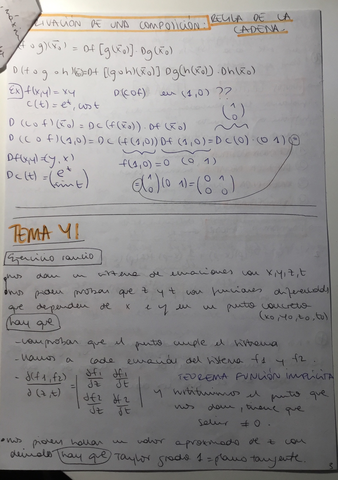 DERIVACIÓN DE UNA COMPOSICIÓN: REGLA DE LA CADENA.
(f∘g)(x̄0) = Df [g(x̄0)] . Dg(x̄0)
D(f∘g∘h)(x̄0)=Df [(g∘h)(x̄0)] Dg(h(x̄0)) . Dh(x̄0)
Ej f(x,y) = xy D(c∘f) en (1,0) ??
c(t) = e^t, cos t
D(c∘f)(x̄0) = Dc(f(x̄0)) . Df(x̄0)
(1 0)
D(c∘f)(1,0) = Dc(f(1,0)) Df(1,0) = Dc(0) (0 1) =
Df(x,y)=(y, x) f(1,0)=0 (0 1)
Dc(t) = (e^t sin t) = (1 0) (0 1) = (0 1 0 0)
TEMA 4|
Ejercicio
• nos dan un sistema de ecuaciones con x,y,z,t
• nos piden probar que z y t son funciones diferenciables
que dependen de x e y en un punto concreto
(x0, y0, z0, t0)
hay que
- comprobar que el punto cumple el sistema
- llamar a cada ecuación del sistema f1 y f2
- ∂(f1,f2)/∂(z,t) = |∂f1/∂z ∂f1/∂t ∂f2/∂z ∂f2/∂t| TEOREMA FUNCIÓN IMPLÍCITA
y sustituimos el punto que
nos dan, tiene que
salir ≠ 0.
• nos piden hallar un valor aproximado de z con
hay que Taylor grado 1 = plano tangente.